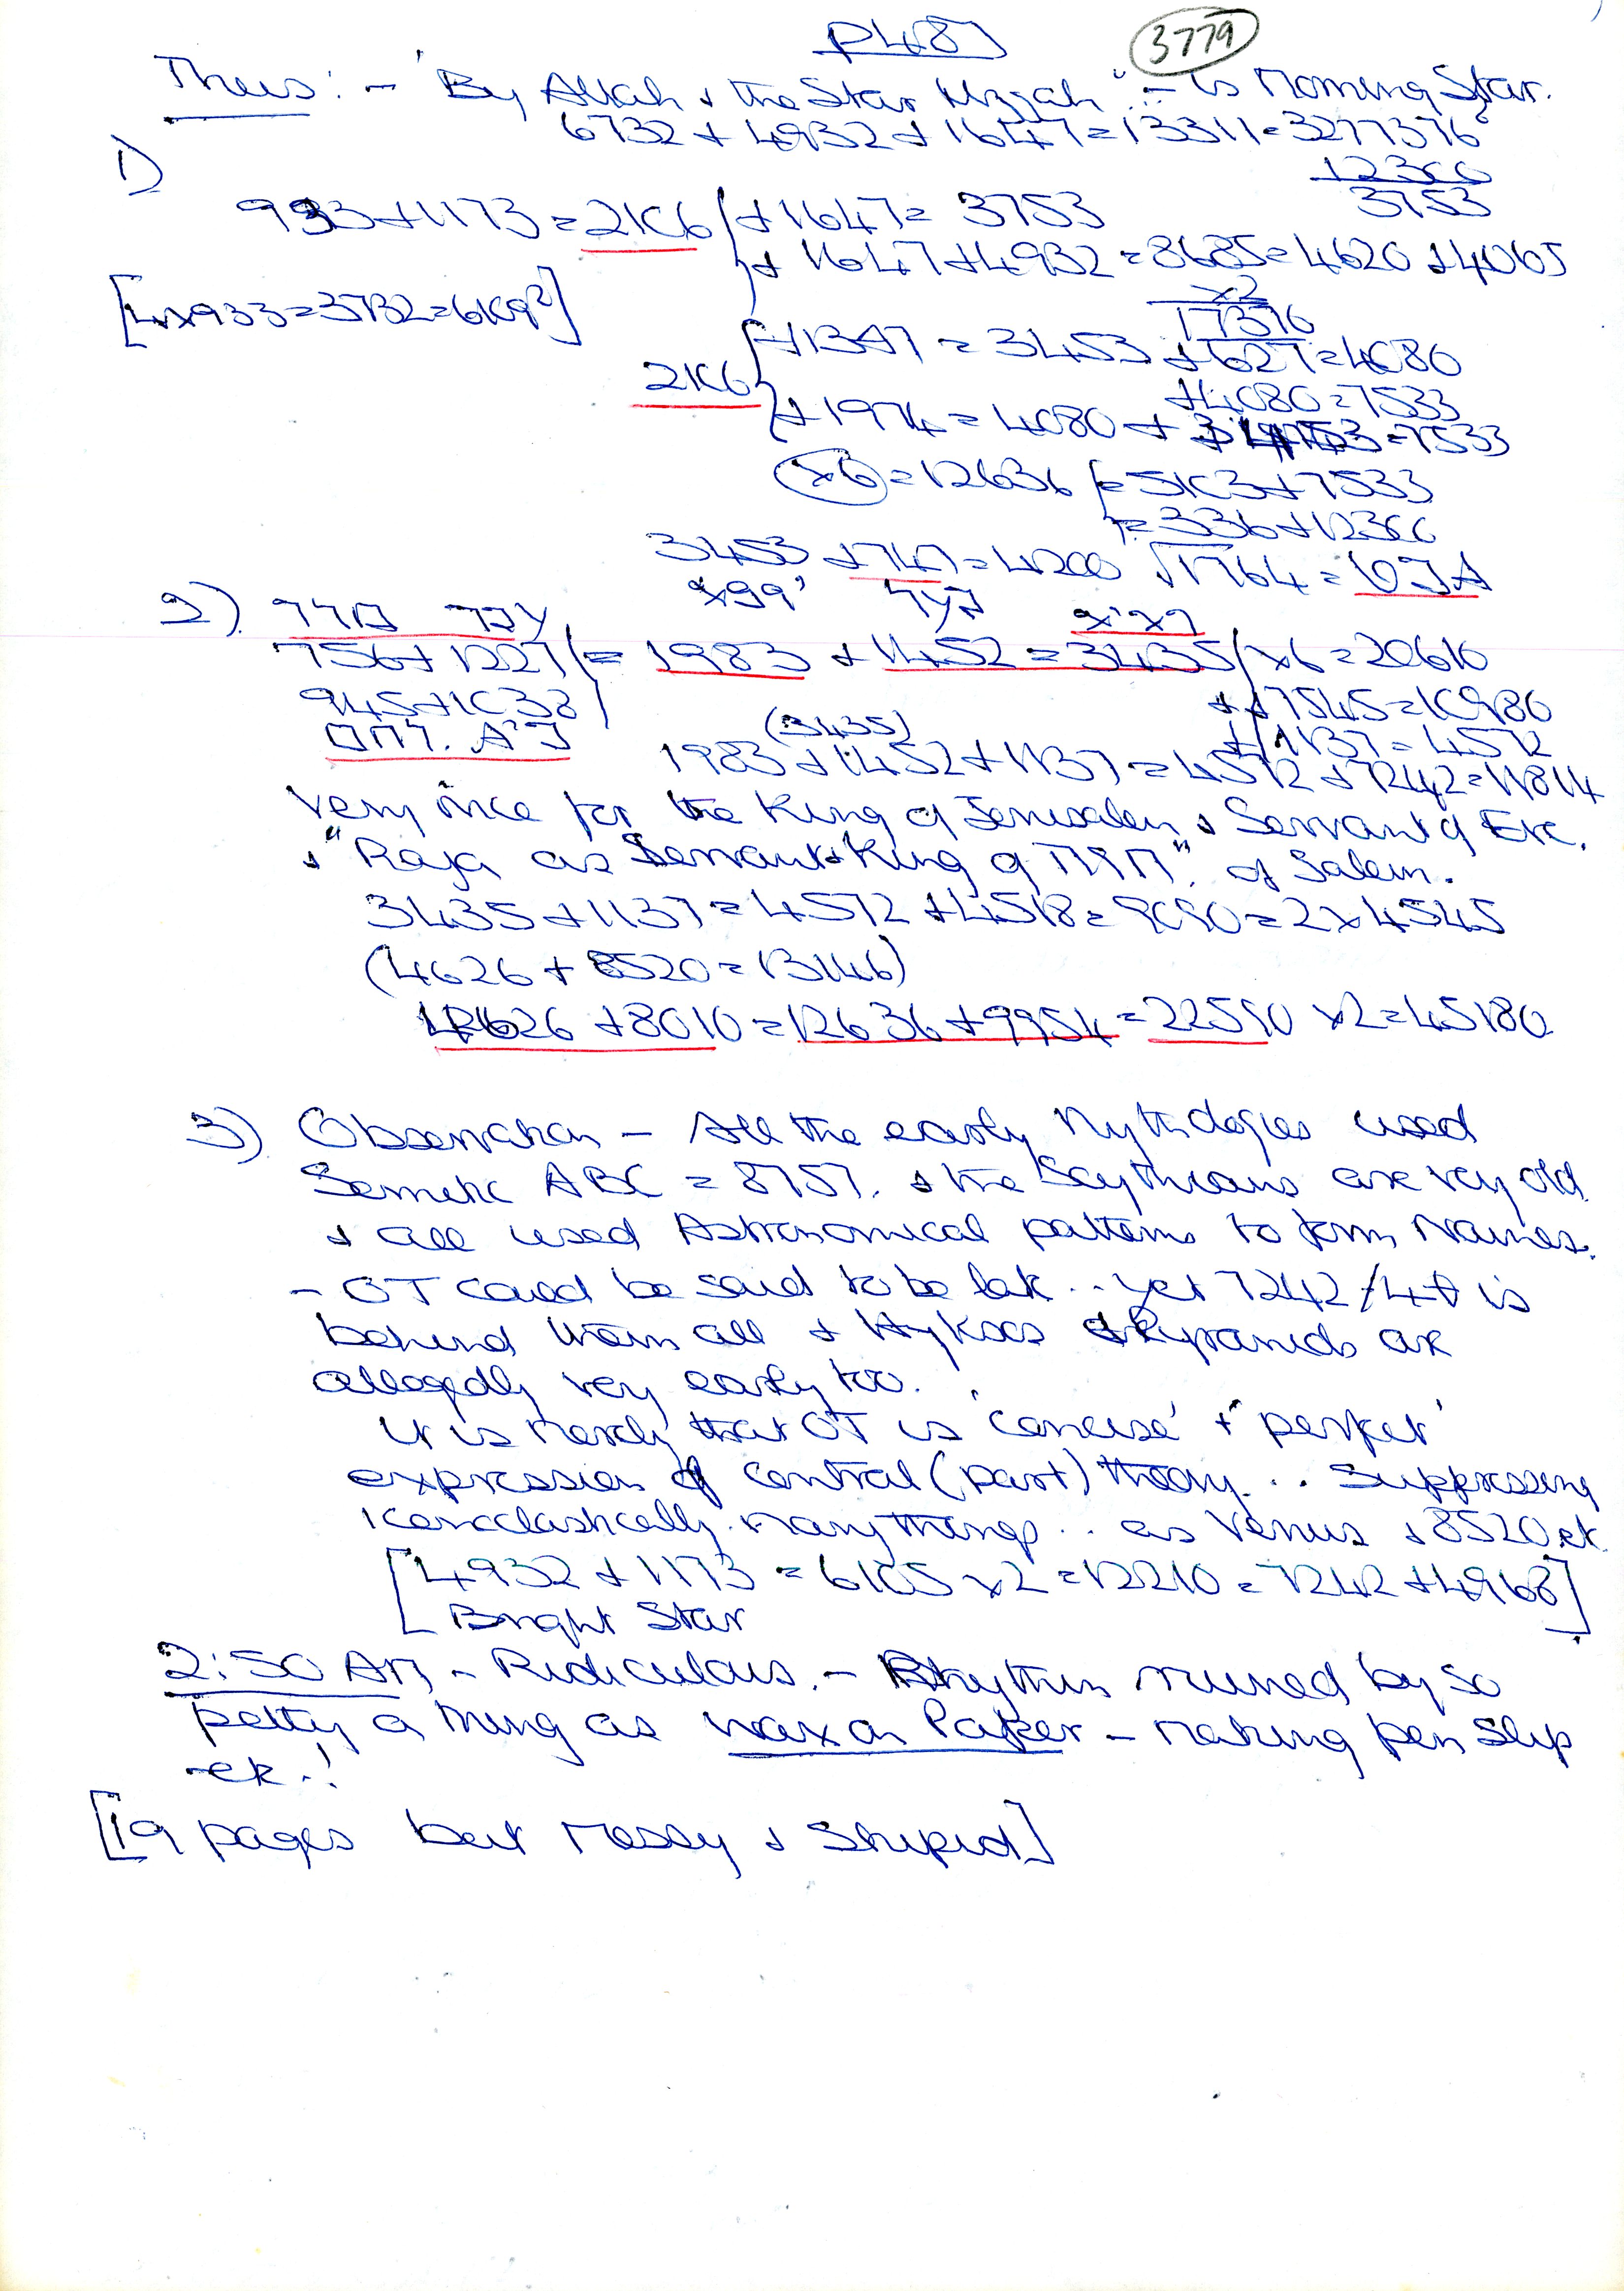 P48]
3779
Thus: - "By Allah & the Star Uzzah" - is Morning Star.
6732 + 4932 + 1647 = 13311 = 3277376
1)
12366
3753
933 + 1173 = 2106 + 1647 = 3753
+ 1647 + 4932 = 8685 = 4620 + 4065
x2
17370
[4x933 = 3732 = 6109²]
+ 1347 = 3453 + 627 = 4080
2106
+ 4080 = 7533
+ 1974 = 4080 + 3453 = 7533
x6 = 12636 = 5103 + 7533
= 336 + 12300
3453 + 747 = 4200 √1764 =
2)
756 + 1227 = 1983 + 1452 = 3435 x6 = 20610
945 + 1038
+ 7545 = 10980
(3435)
+ 1137 = 4572
1983 + 1452 + 1137 = 4572 + 7242 = 11814
Very nice for the King of Jerusalem & Servant of Eve.
& "Raja as Servant & King of" of Salem.
3435 + 1137 = 4572 + 4518 = 9090 = 2 x 4545
(4626 + 8520 = 13146)
+ 8010 = 12636 + 9954 = 22590 x2 = 45180
3) Observation - All the early Mythologies used
Semetic ABC = 8757. & the Scythians are very old.
& all used Astronomical patterns to form Names.
- OT could be said to be late .. yet 7242/4+ is
behind them all & Hyksos & Pyramids are
allegedly very early too.
It is merely that OT is 'concise' & 'perfect'
expression of central (part) theory... Suppressing
iconoclastically many things .. as Venus & 8520 etc.
[4932 + 1173 = 6105 x2 = 12210 = 7242 + 4968]
Bright Star
2:50 AM - Ridiculous. - Rhythm ruined by so
petty a thing as wax on Paper - making pen slip
-etc..!
[19 pages but messy & Stupid]